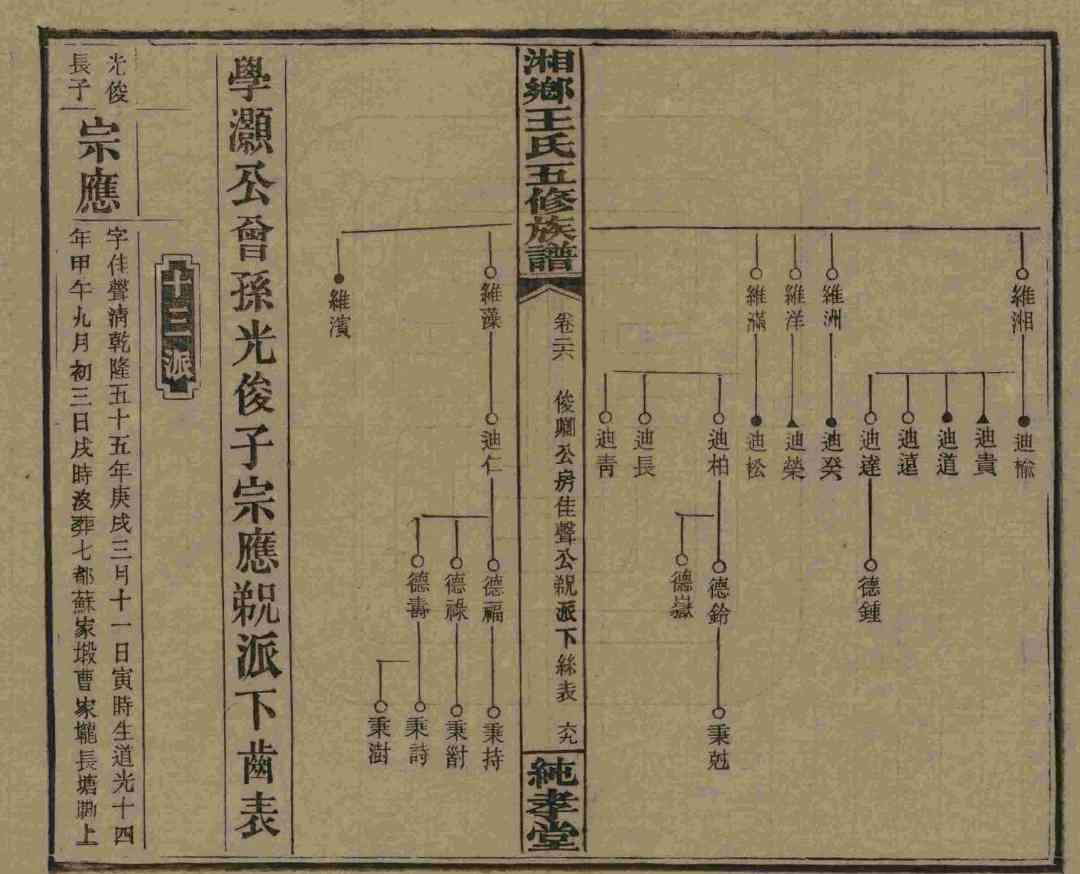 維湘
維洲
維洋
維滿
迪榆
迪貴
迪道
迪遠
迪達
迪癸
迪榮
迪松
迪柏
迪長
迪青
德鍾
德鈴
德嶽
秉尅
湘鄉王氏五修族譜
卷二六
俊卿公房佳聲公派下絲表
六九
純孝堂
維藻
維濱
迪仁
德福
德祿
德壽
秉持
秉對
秉詩
秉澍
學灝公曾孫光俊子宗應派下齒表
十三派
光俊
長子
宗應
字佳聲清乾隆五十五年庚戌三月十一日寅時生道光十四
年甲午九月初三日戌時沒葬七都蘇家塅曹家壠長塘上